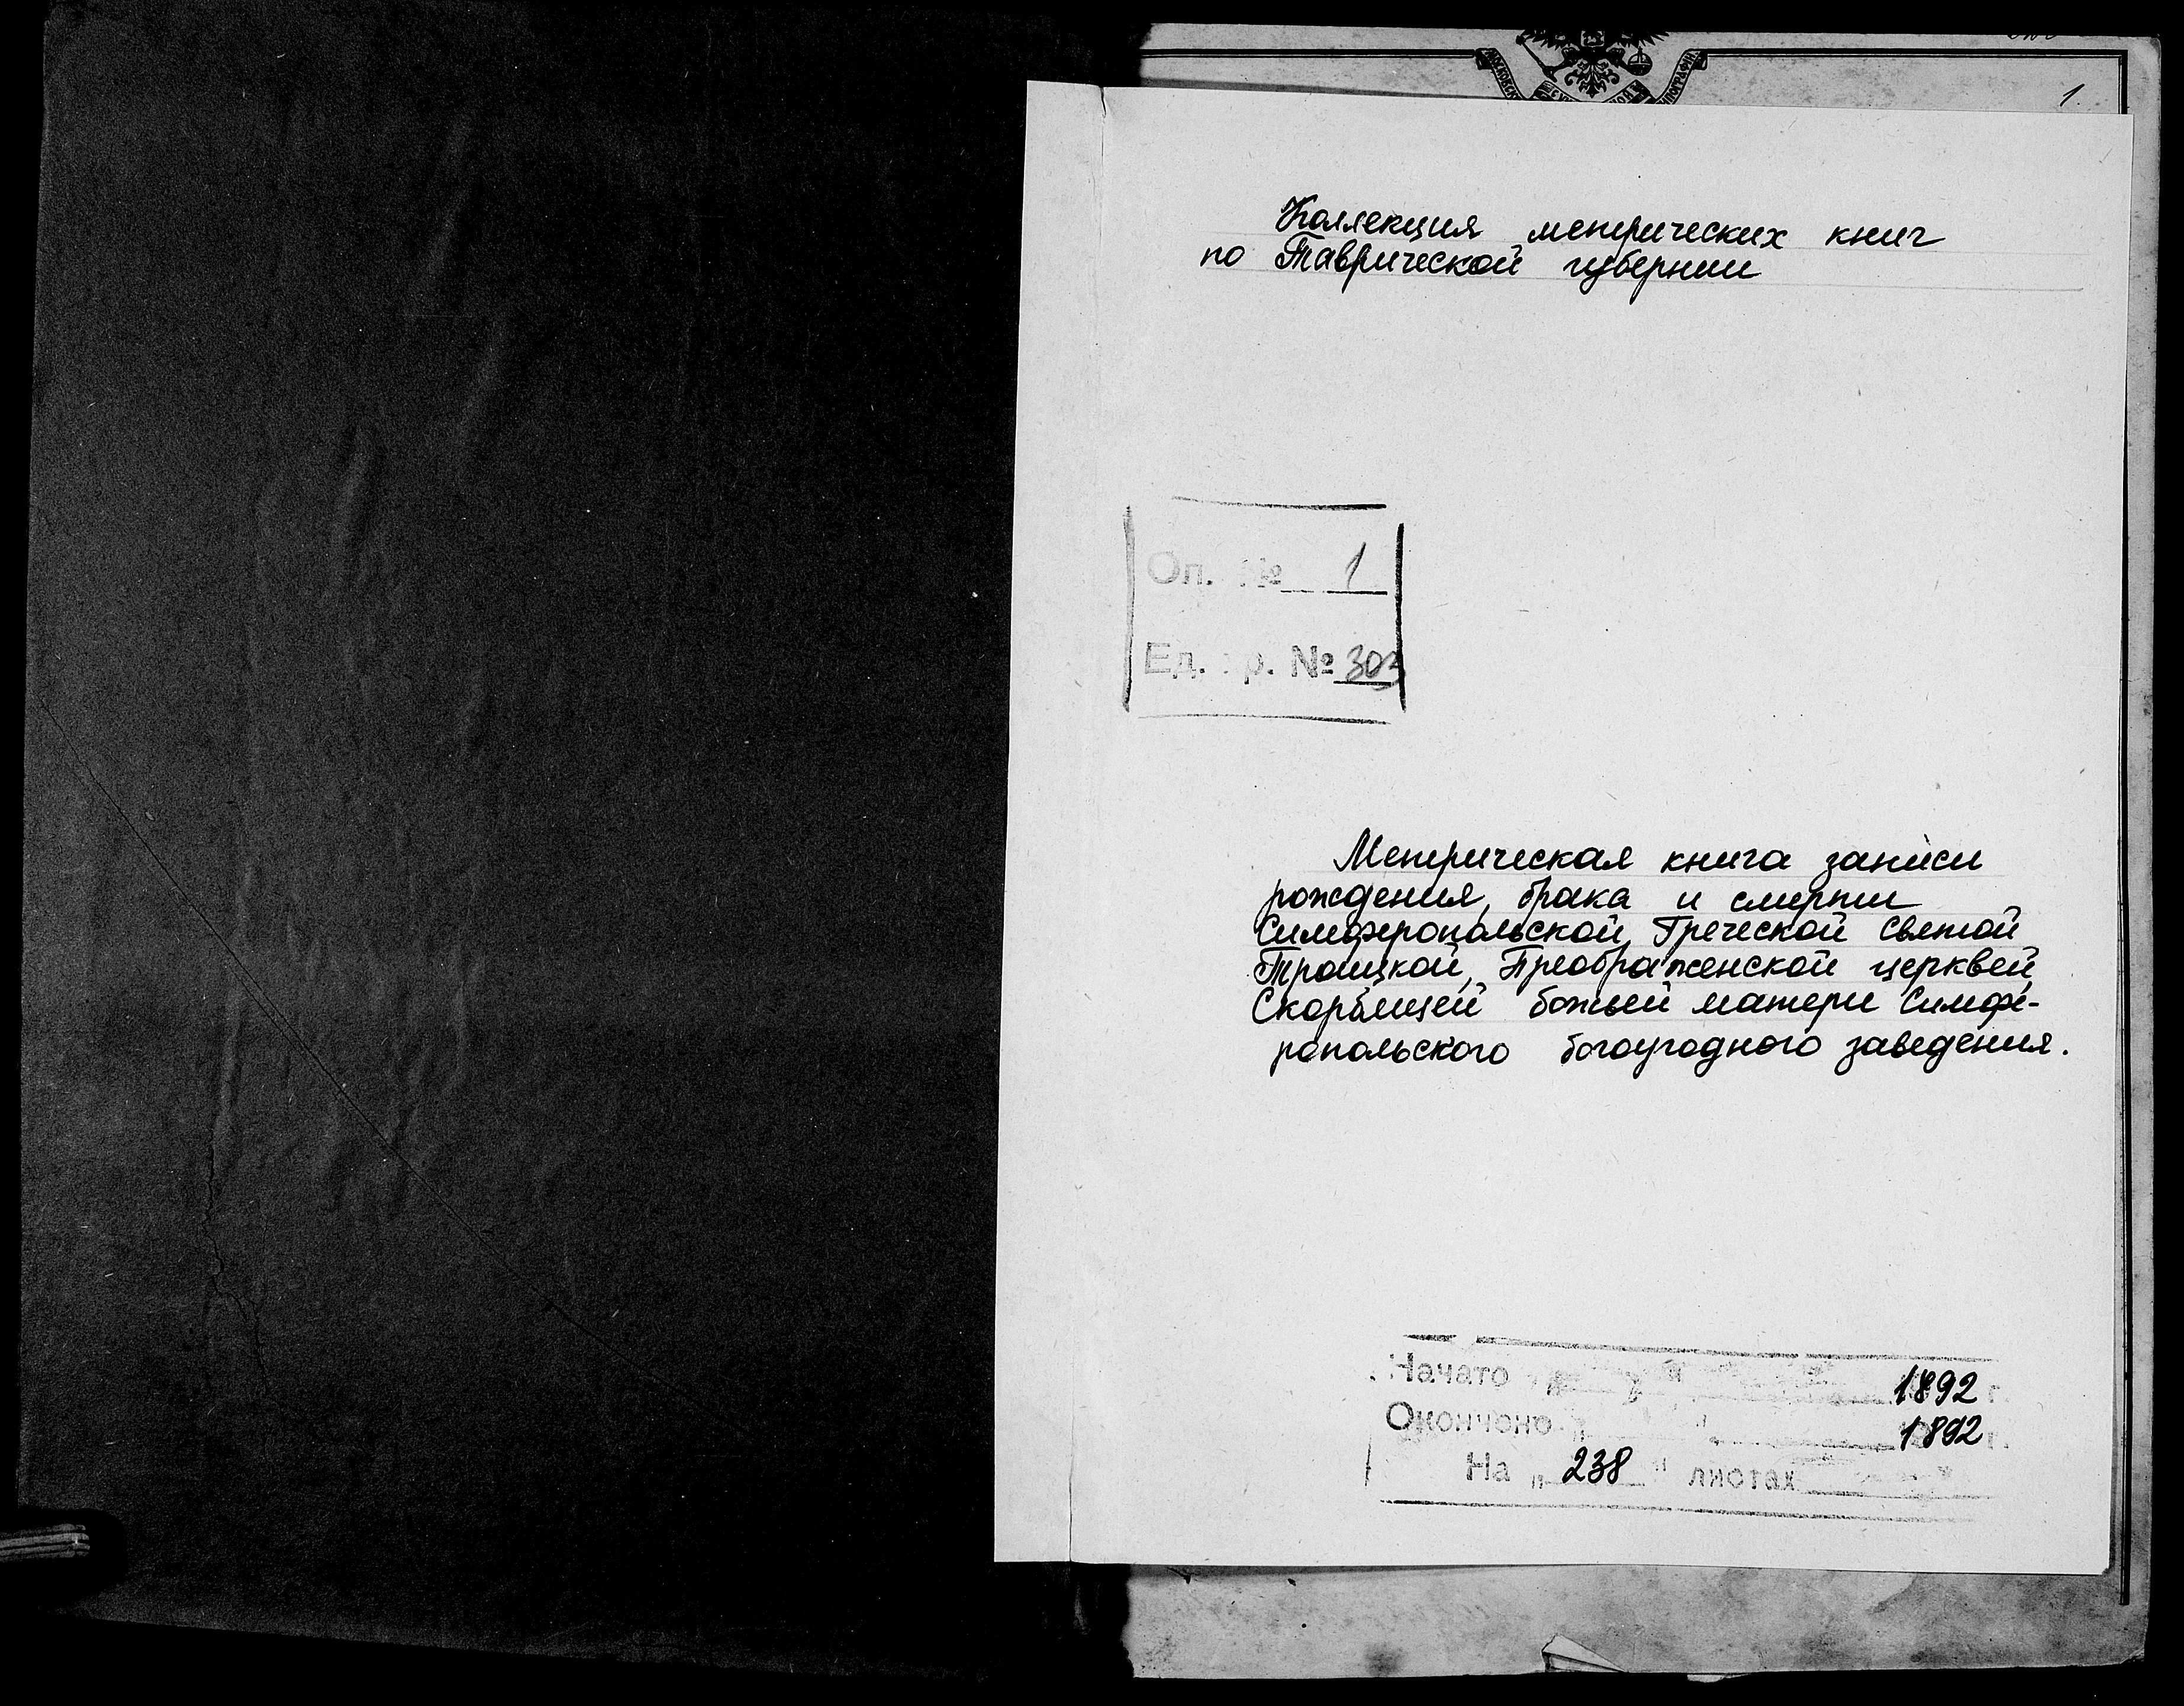 1.
Коллекция метрических книг
по Таврической губернии
Оп. № 1
Ед. р. № 303
Метрическая книга записи
рождения, брака и смерти
Симферопольской, Греческой Святой
Троицкой, Преображенской церквей,
Скорбящей божьей матери Симфе-
ропольского богоугодного заведения.
Начато " " 1892 г.
Окончено " " 1892 г.
На " 238 " листах